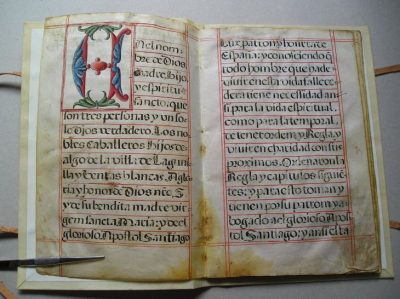 Nel nom
bre de Dios,
Padre, Hijo,
y espiritu
sancto: que
son tres personas y un so
lo Dios verdadero. Los no
bles Caballeros Hijos de
algo de la villa de Lagu
nilla y Ventas blancas, A glo
ria y honor de Dios nro. S.
y de su bendita madre vir
gen sancta Maria: y del
glorioso Apostol Santiago
Luz patron y honrra de
España: y conosciendo q
todo hombre que ha de
vivir en esta vida falle ce
dera tiene necessidad an
si para la vida espiritual,
como para la temporal,
de tener orden y Regla y
vivir en charidad con sus
proximos. Ordenaron la
Regla y capitulos siguien
tes: y para esto toman y
tienen por su patron y a
bogado al glorioso Apos
tol Santiago: y an si esta